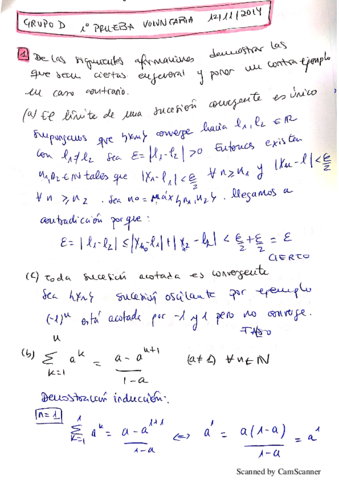 GRUPO D 1ª PRUEBA VOLUNTARIA 12/11/2014
1 De las siguientes afirmaciones demostrar las
que sean ciertas en general y poner un contraejemplo
en caso contrario.
(a) El límite de una sucesión convergente es único
Supongamos que {xn} converge hacia l₁, l₂ ∈ ℝ
con l₁ ≠ l₂ Sea ε = |l₁-l₂| > 0 Entonces existen
n₁, n₂ ∈ ℕ tales que |xn - l₁| < ε/2 ∀ n ≥ n₁ y |xn - l| < ε/2
∀ n ≥ n₂ . Sea n₀ = máx {n₁, n₂} . llegamos a
contradicción porque :
ε = |l₁ - l₂| ≤ |xn₀ - l₁| + |x₂ - l₂| < ε/2 + ε/2 = ε
CIERTO
(c) toda sucesión acotada es convergente
Sea {xn} sucesión oscilante por ejemplo
(-1)ⁿ está acotada por -1 y 1 pero no converge.
(b) n ∑ k=1 aᵏ = a - aⁿ⁺¹ / 1-a (a ≠ 1) ∀ n ∈ ℕ
Demostración inducción:
n=1 1 ∑ k=1 aᵏ = a - a¹⁺¹ / 1-a ⟺ a¹ = a(1-a) / 1-a = a¹
Scanned by CamScanner